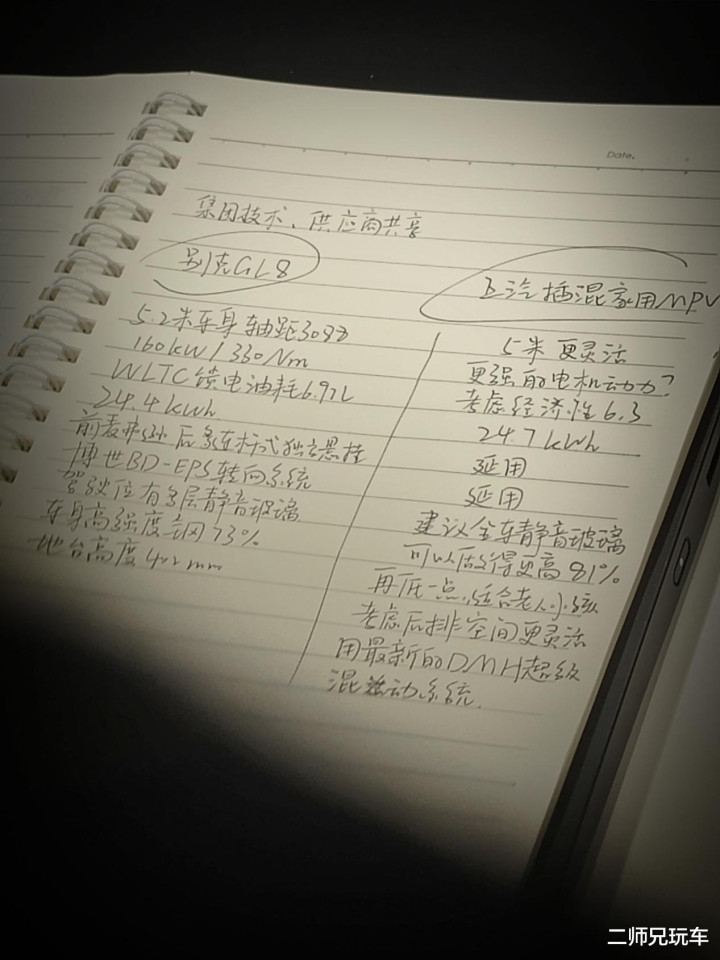 Date.
集团技术、供应商共享
别克GL8
5.2米车身 轴距3088
160kW/330Nm
WLTC馈电油耗6.97L
24.4kWh
前麦弗逊后多连杆式独立悬挂
博世BD-EPS转向系统
驾驶位有多层静音玻璃
车身高强度钢73%
地台高度422mm
上汽插混家用MPV
5米 更灵活
更强的电机动力?
考虑经济性6.3
24.7kWh
延用
延用
建议全车静音玻璃
可以做得更高81%
再低一点,适合老人小孩
考虑后排空间更灵活
用最新的DMH超级
混动系统.
二师兄玩车